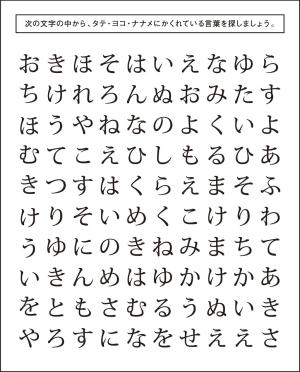 次の文字の中から、タテ・ヨコ・ナナメにかくれている言葉を探しましょう。
おきほそはいえなゆら
ちけれろんぬおみたす
ほうやねなのよくいよ
むてこえひしもるひあ
きつすはくらえまそふ
けりそいめくこけりわ
うゆにのきねみまちて
いきんめはゆかけかあ
をともさむるうぬいき
やろすになをせええさ